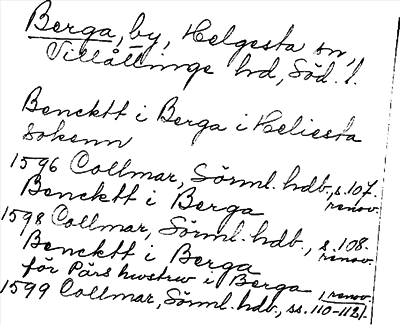 Berga, by, Helgesta sn,
Villåttinge hd, Söd. l.
Bencktt i Berga i Heliesta
sokenn
1596 Collmar, Sörml. hdb., s. 107.
renov.
Bencktt i Berga
1598 Collmar, Sörml. hdb., s. 108.
renov.
Bencktt i Berga
för Pärs hwstrw i Berga
1599 Collmar, Sörml. hdb., ss. 110-112, renov.